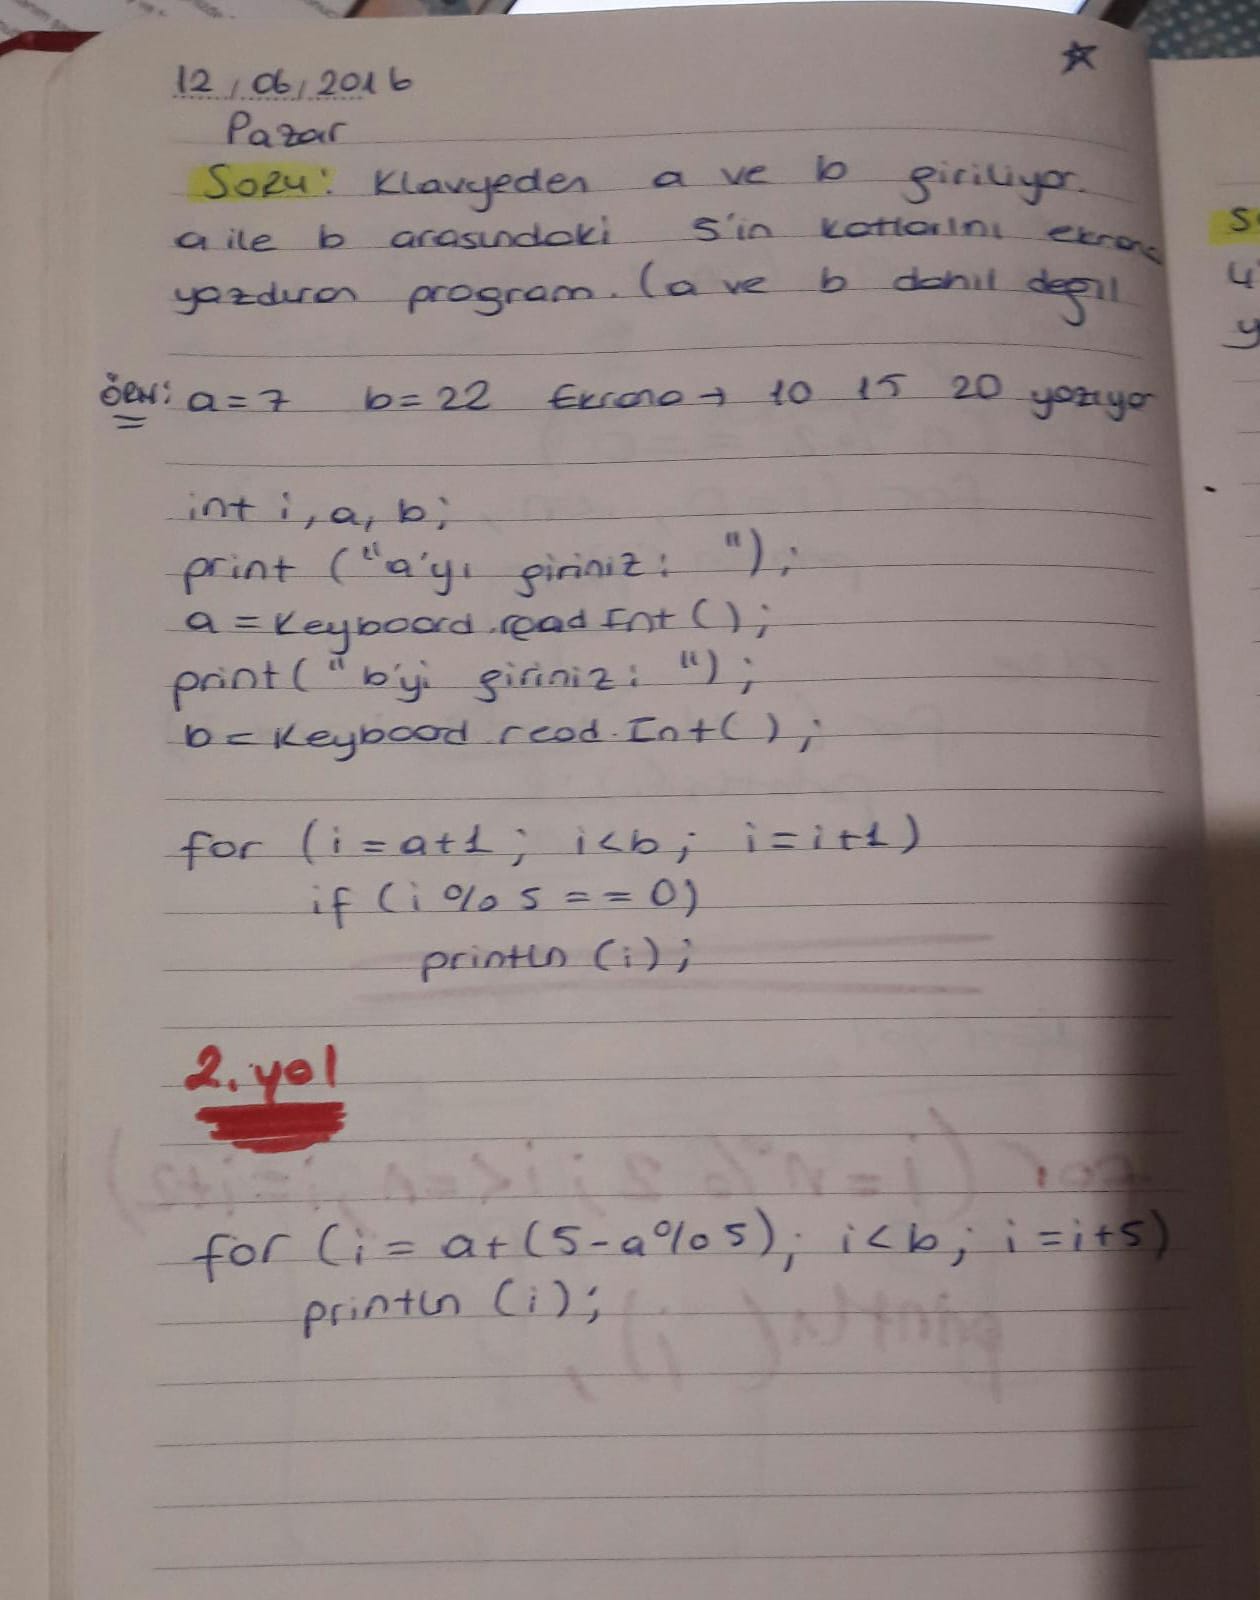 12/06/2016
Pazar
Soru: Klavyeden a ve b giriliyor.
a ile b arasındaki 5'in katlarını ekrana
yazdıran program. (a ve b dahil değil
ÖRN: a=7 b=22 Ekrana → 10 15 20 yazıyor
int i, a, b;
print ("a'yı giriniz: ");
a = Keyboard.readInt();
print("b'yi giriniz: ");
b = Keyboard.readInt();
for (i=a+1; i<b; i=i+1)
if (i%5==0)
println (i);
2. yol
for (i = a+(5-a%5); i<b; i=i+5)
println (i);